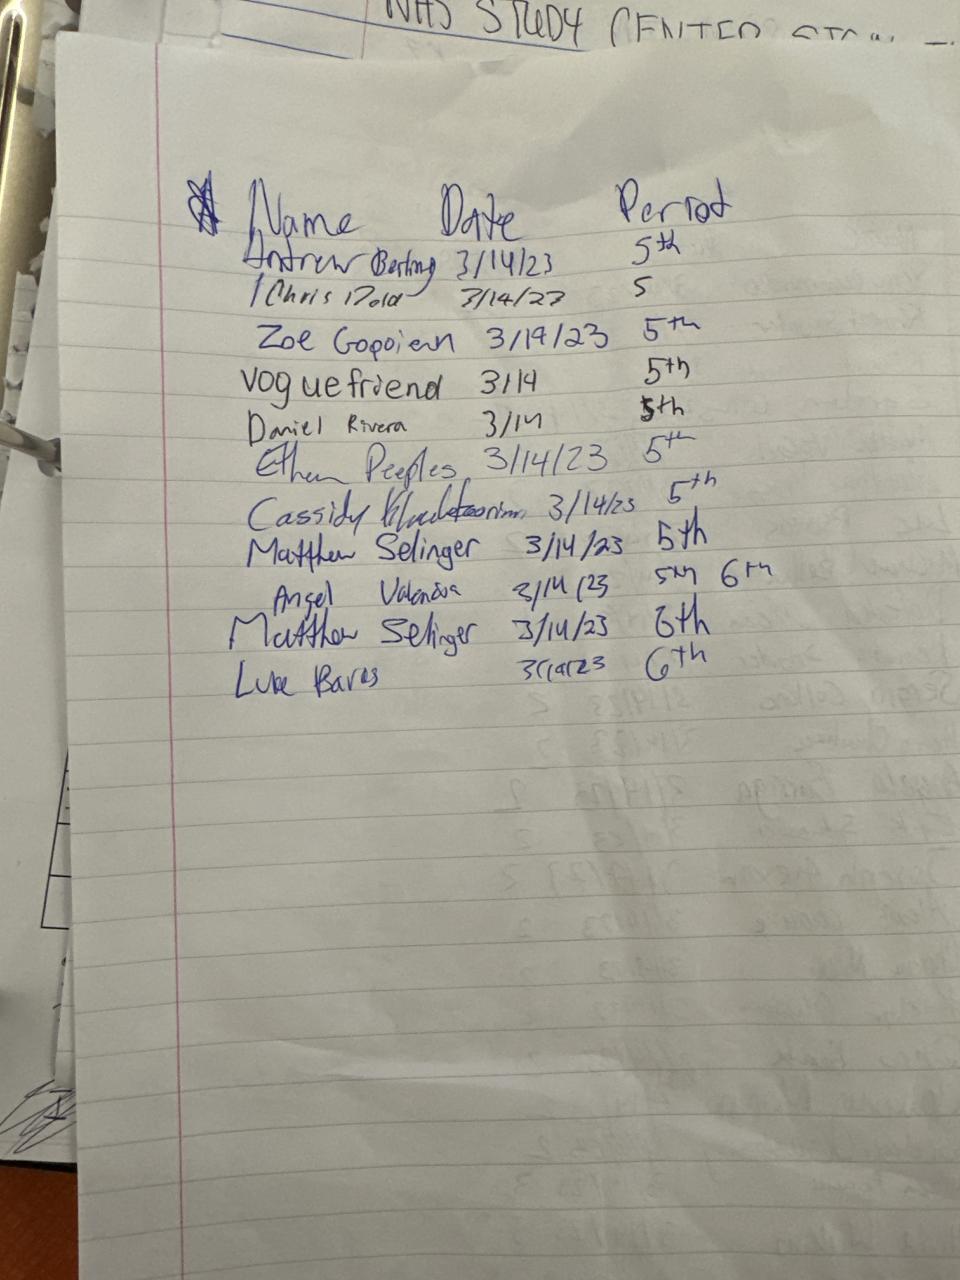 NHS STUDY CENTER
Name Date Period
Andrew Berling 3/14/23 5th
Chris 3/14/23 5
Zoe Gopoian 3/14/23 5th
voguefriend 3/14 5th
Daniel Rivera 3/14 5th
Ethan Peeples 3/14/23 5th
Cassidy 3/14/23 5th
Matthew Selinger 3/14/23 5th
Angel Valencia 3/14/23 5th 6th
Matthew Selinger 3/14/23 6th
Luke 3/14/23 6th